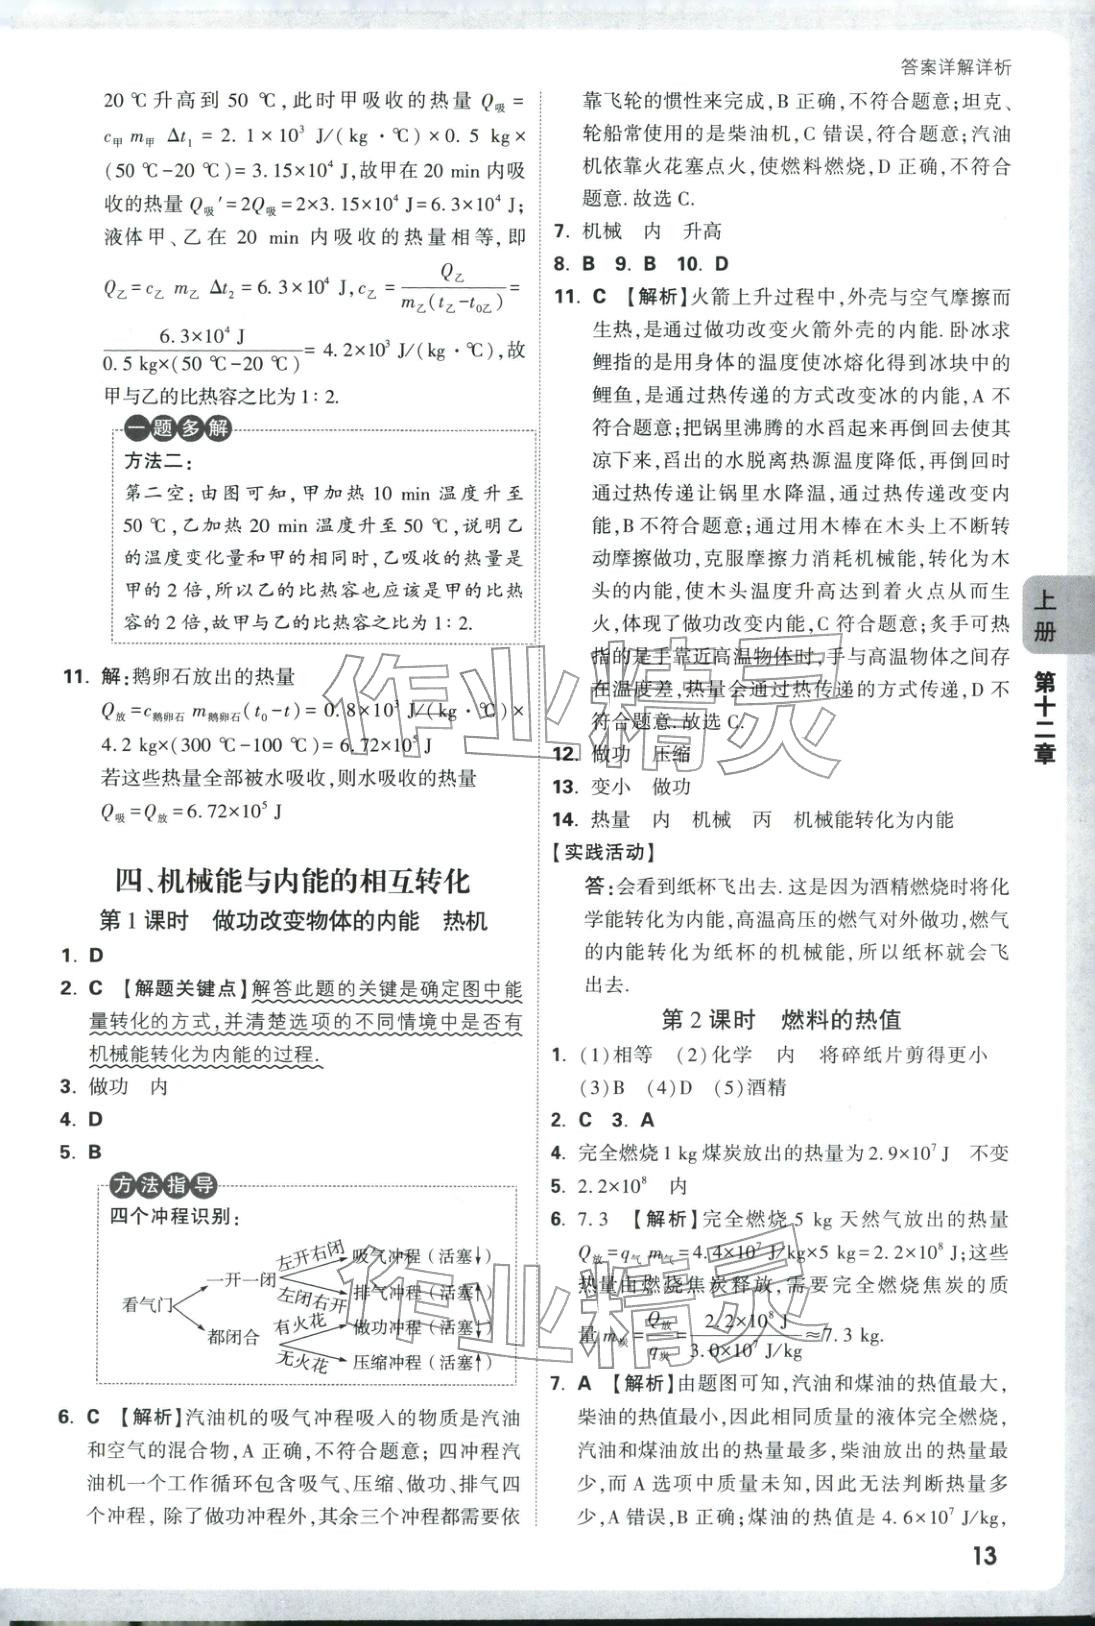 答案详解详析
20 ℃升高到 50 ℃,此时甲吸收的热量 Q吸=
c甲 m甲 Δt₁ = 2.1×10³ J/(kg·℃)×0.5 kg×
(50 ℃-20 ℃)=3.15×10⁴ J,故甲在 20 min 内吸
收的热量 Q吸′=2Q吸=2×3.15×10⁴ J=6.3×10⁴ J;
液体甲、乙在 20 min 内吸收的热量相等,即
Q乙=c乙 m乙 Δt₂=6.3×10⁴ J,c乙=Q乙/m乙(t乙-t₀乙)=
6.3×10⁴ J/0.5 kg×(50 ℃-20 ℃)=4.2×10³ J/(kg·℃),故
甲与乙的比热容之比为 1∶2.
一题多解
方法二:
第二空:由图可知,甲加热 10 min 温度升至
50 ℃,乙加热 20 min 温度升至 50 ℃,说明乙
的温度变化量和甲的相同时,乙吸收的热量是
甲的 2 倍,所以乙的比热容也应该是甲的比热
容的 2 倍,故甲与乙的比热容之比为 1∶2.
11. 解:鹅卵石放出的热量
Q放=c鹅卵石 m鹅卵石(t₀-t)=0.8×10³ J/(kg·℃)×
4.2 kg×(300 ℃-100 ℃)=6.72×10⁵ J
若这些热量全部被水吸收,则水吸收的热量
Q吸=Q放=6.72×10⁵ J
四、机械能与内能的相互转化
第 1 课时 做功改变物体的内能 热机
1. D
2. C 【解题关键点】解答此题的关键是确定图中能
量转化的方式,并清楚选项的不同情境中是否有
机械能转化为内能的过程.
3. 做功 内
4. D
5. B
方法指导
四个冲程识别:
看气门
一开一闭
左开右闭
吸气冲程(活塞↓)
左闭右开
排气冲程(活塞↑)
都闭合
有火花
做功冲程(活塞↓)
无火花
压缩冲程(活塞↑)
6. C 【解析】汽油机的吸气冲程吸入的物质是汽油
和空气的混合物,A 正确,不符合题意;四冲程汽
油机一个工作循环包含吸气、压缩、做功、排气四
个冲程,除了做功冲程外,其余三个冲程都需要依
靠飞轮的惯性来完成,B 正确,不符合题意;坦克、
轮船常使用的是柴油机,C 错误,符合题意;汽油
机依靠火花塞点火,使燃料燃烧,D 正确,不符合
题意.故选 C.
7. 机械 内 升高
8. B 9. B 10. D
11. C 【解析】火箭上升过程中,外壳与空气摩擦而
生热,是通过做功改变火箭外壳的内能.卧冰求
鲤指的是用身体的温度使冰熔化得到冰块中的
鲤鱼,是通过热传递的方式改变冰的内能,A 不
符合题意;把锅里沸腾的水舀起来再倒回去使其
凉下来,舀出的水脱离热源温度降低,再倒回时
通过热传递让锅里水降温,通过热传递改变内
能,B 不符合题意;通过用木棒在木头上不断转
动摩擦做功,克服摩擦力消耗机械能,转化为木
头的内能,使木头温度升高达到着火点从而生
火,体现了做功改变内能,C 符合题意;炙手可热
指的是手靠近高温物体时,手与高温物体之间存
在温度差,热量会通过热传递的方式传递,D 不
符合题意.故选 C.
12. 做功 压缩
13. 变小 做功
14. 热量 内 机械 丙 机械能转化为内能
【实践活动】
答:会看到纸杯飞出去.这是因为酒精燃烧时将化
学能转化为内能,高温高压的燃气对外做功,燃气
的内能转化为纸杯的机械能,所以纸杯就会飞
出去.
第 2 课时 燃料的热值
1. (1)相等 (2)化学 内 将碎纸片剪得更小
(3)B (4)D (5)酒精
2. C 3. A
4. 完全燃烧 1 kg 煤炭放出的热量为 2.9×10⁷ J 不变
5. 2.2×10⁸ 内
6. 7.3 【解析】完全燃烧 5 kg 天然气放出的热量
Q放=q气 m气=4.4×10⁷ J/kg×5 kg=2.2×10⁸ J;这些
热量由燃烧焦炭释放,需要完全燃烧焦炭的质
量 m炭=Q放/q炭=2.2×10⁸ J/3.0×10⁷ J/kg≈7.3 kg.
7. A 【解析】由题图可知,汽油和煤油的热值最大,
柴油的热值最小,因此相同质量的液体完全燃烧,
汽油和煤油放出的热量最多,柴油放出的热量最
少,而 A 选项中质量未知,因此无法判断热量多
少,A 错误,B 正确;煤油的热值是 4.6×10⁷ J/kg,
上册
第十二章
作业精灵
作业精灵
13